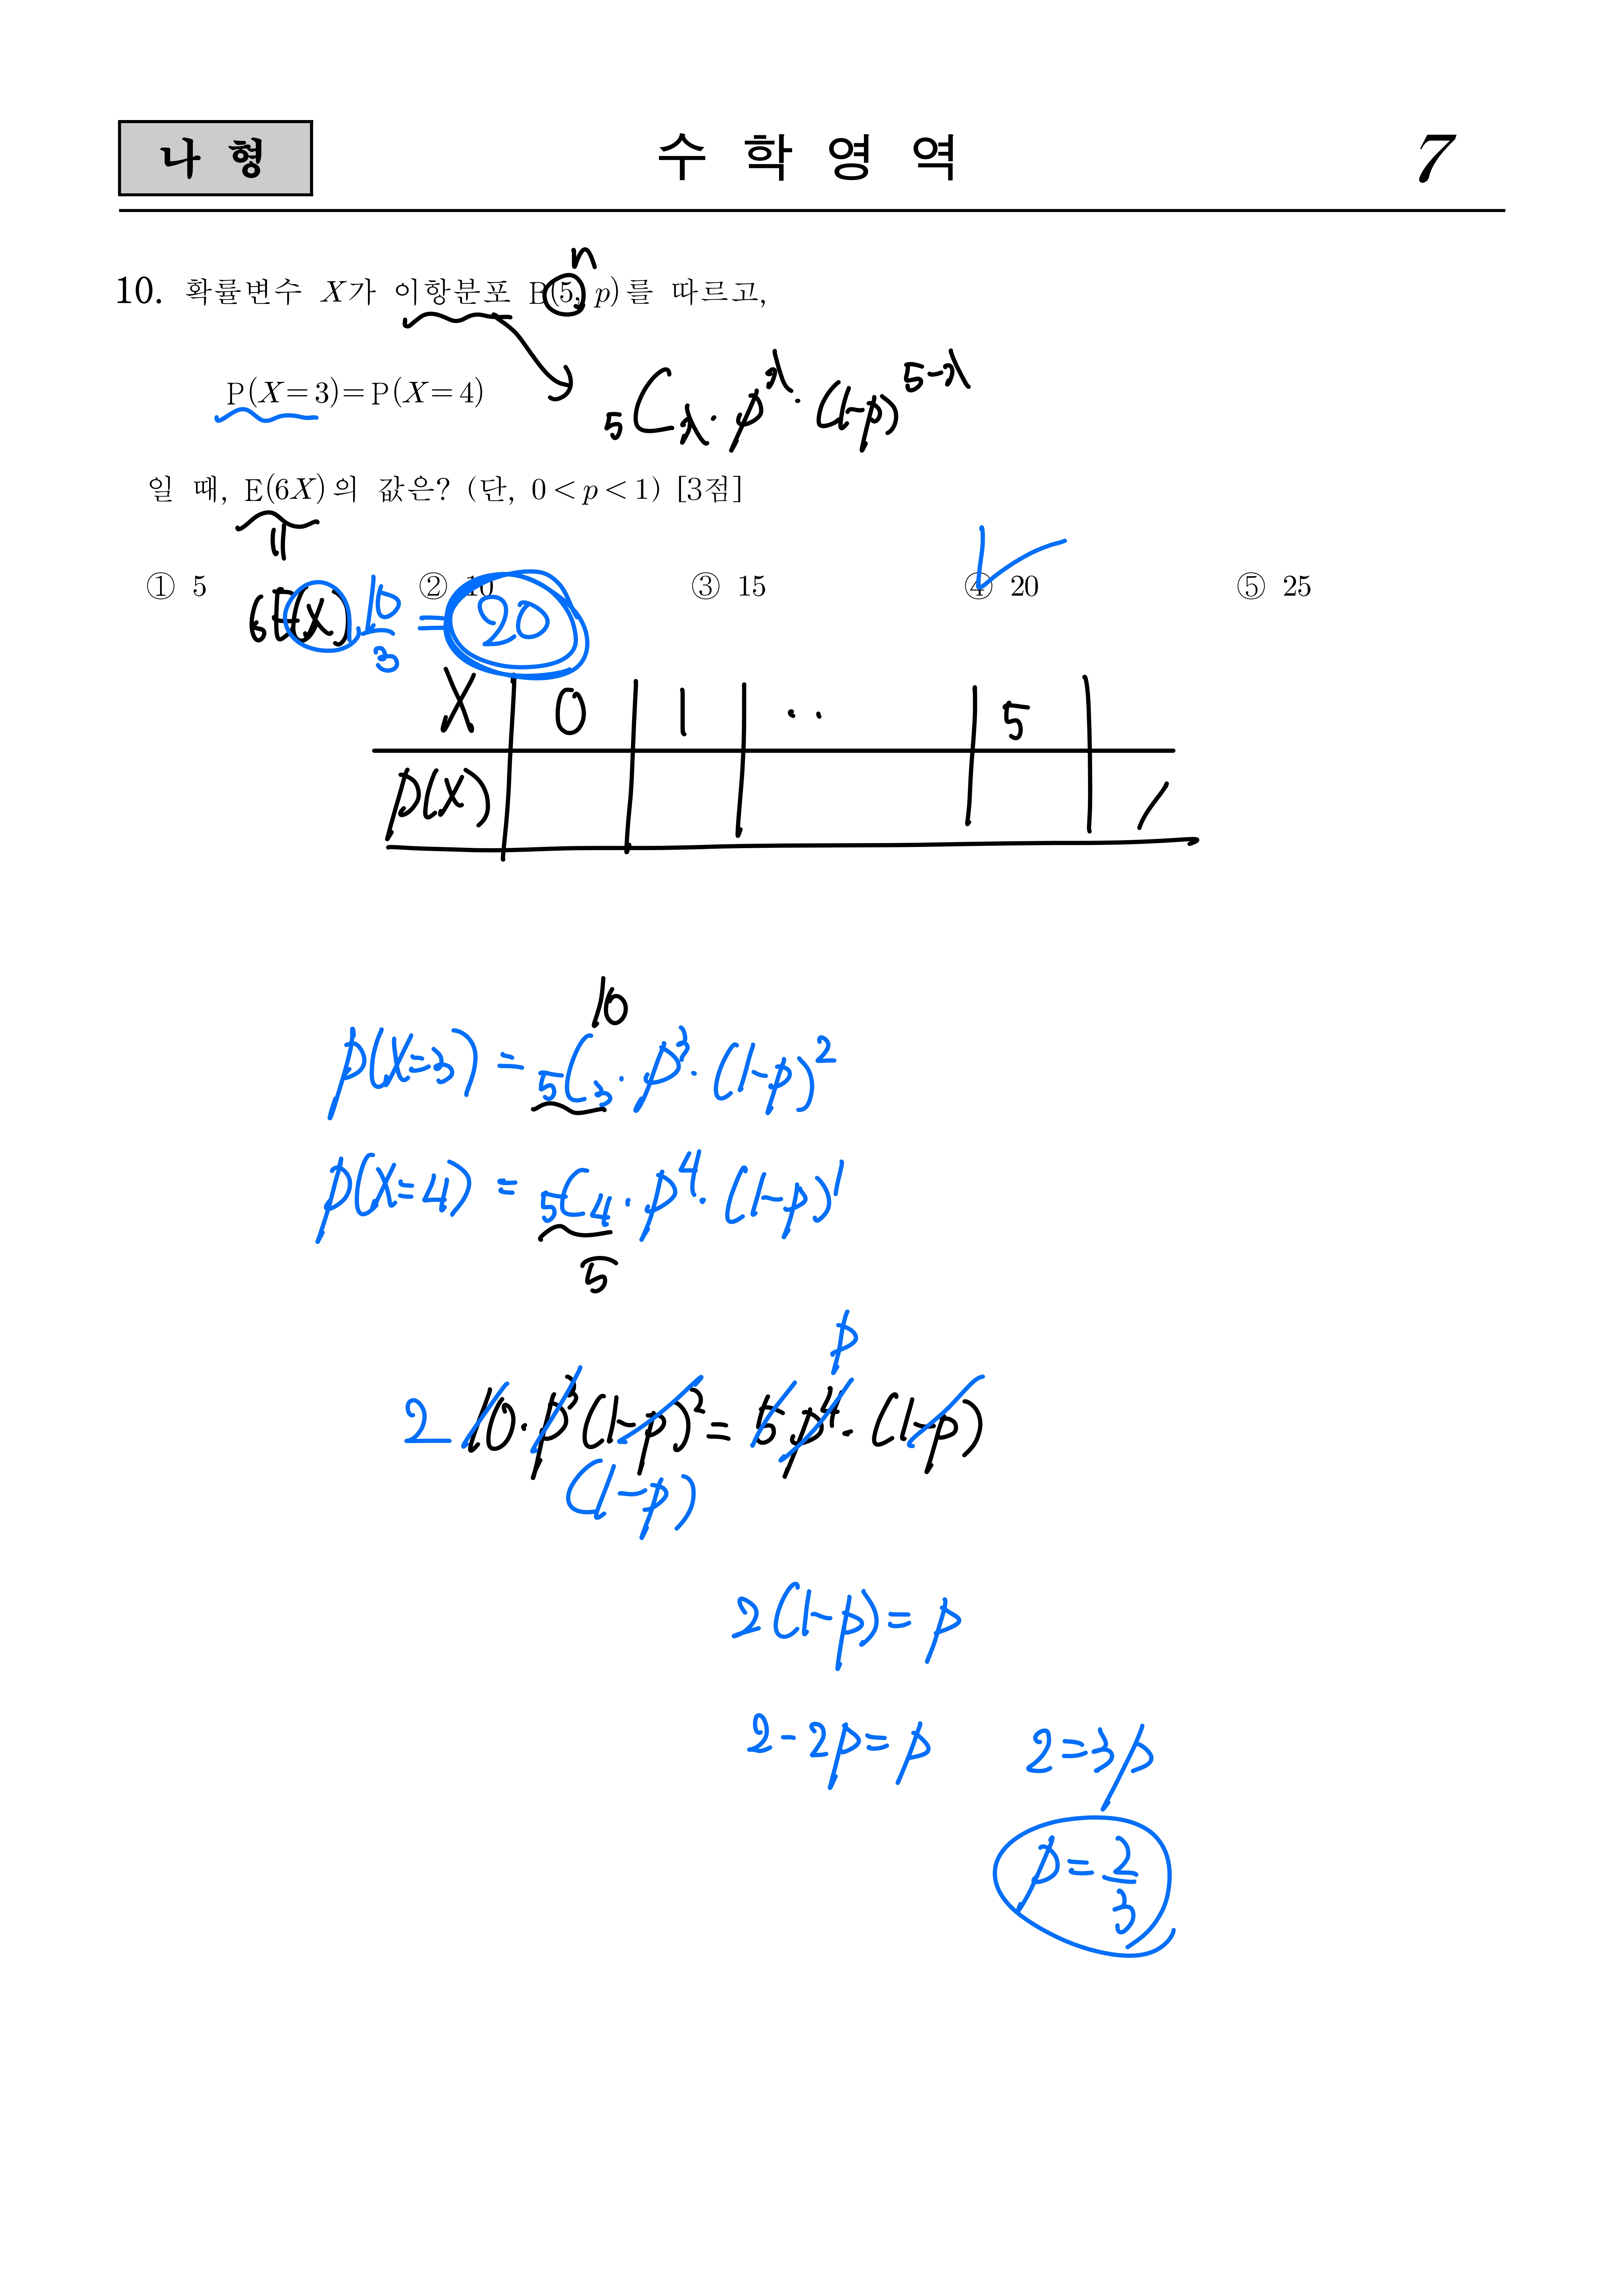 나 형
수 학 영 역
7
n
10. 확률변수 X가 이항분포 B(5, p)를 따르고,
P(X=3)=P(X=4)
₅Cₓ · pˣ · (1-p)⁵⁻ˣ
일 때, E(6X)의 값은? (단, 0<p<1) [3점]
① 5 ② 10 ③ 15 ④ 20 ⑤ 25
6E(X) 10/3 = 20
X 0 1 ·· 5
p(X) 1
10
p(X=3) = ₅C₃ · p³ · (1-p)²
p(X=4) = ₅C₄ · p⁴ · (1-p)¹
5
p
2 10 · p³ (1-p)² = 5 p⁴ · (1-p)
(1-p)
2(1-p) = p
2-2p=p 2=3p
p=2/3